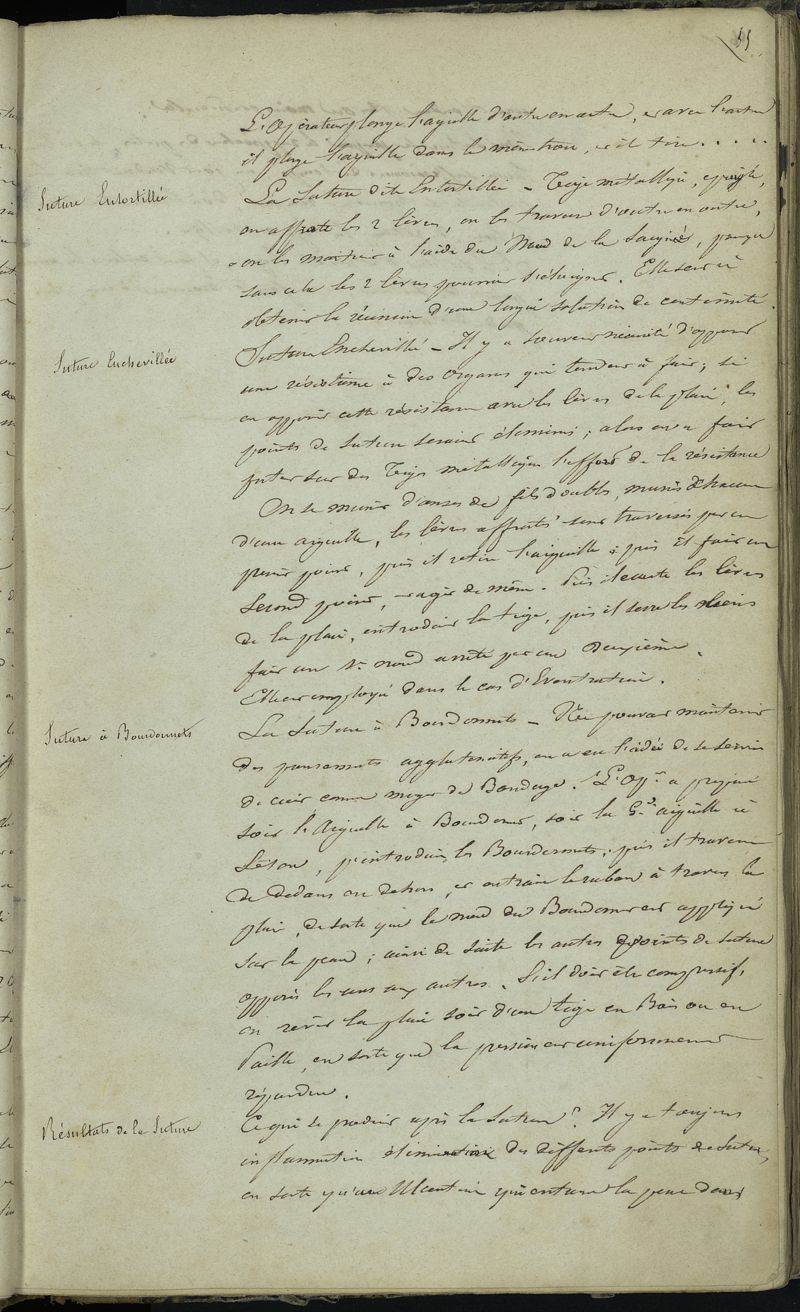 55
L'Opérateur plonge l'aiguille d'outre en outre, et avec l'autre
il plonge l'aiguille dans le même trou, et il tire . . . . .
Suture Entortillée
La Suture dite Entortillée – Tige métallique, épingle,
on affronte les 2 lèvres, on les traverse d'outre en outre,
on les maintient à l'aide du Nœud de la Saignée, parceque
sans cela les 2 lèvres pourraient s'éloigner. Elle sert à
obtenir la réunion d'une longue solution de continuité.
Suture Enchevillée
Suture Enchevillée – Il y a souvent nécessité d'opposer
une résistance à des organes qui tendent à fair; si
on opposait cette résistance avec les lèvres de la plaie, les
points de suture seraient éliminés; alors on a fait
jeter sur des tiges métalliques l'effort de la résistance
On se munit d'anses de fils doubles, munis chacun
d'une aiguille, les lèvres affrontés sont traversés par un
premier point, puis il retire l'aiguille; puis il fait un
Second point, et agit de même. Puis il écarte les lèvres
de la plaie, introduit la tige, puis il serre les liens
fait un 1er nœud arrêté par un deuxième.
Elle est employée dans le cas d'Eventration.
Suture à Bourdonnets
La Suture à Bourdonnets – Ne pouvant maintenir
des pansements agglutinatifs, on a eu l'idée de se servir
de ceux comme moyen de Bandage. L'Opr a préparé
soit l'Aiguille à Bourdonnet, soit la Gde aiguille à
Séton, introduit les Bourdonnets; puis il traverse
de dedans en dehors, et entraine le ruban à travers la
plaie, de sorte que le nœud du Bourdonnet est appliqué
sur la peau; ainsi de suite les autres points de suture
opposés les uns aux autres. S'il doit être compressif,
on revêt la plaie soit d'une tige en Bois ou en
Paille, en sorte que la pression est uniformement
répandue.
Résultats de la Suture
Ce qui se produit après la Suture? Il y a toujours
inflammation élimination des différents points de Suture,
en sorte qu'une Ulcération qui entame la peau dans